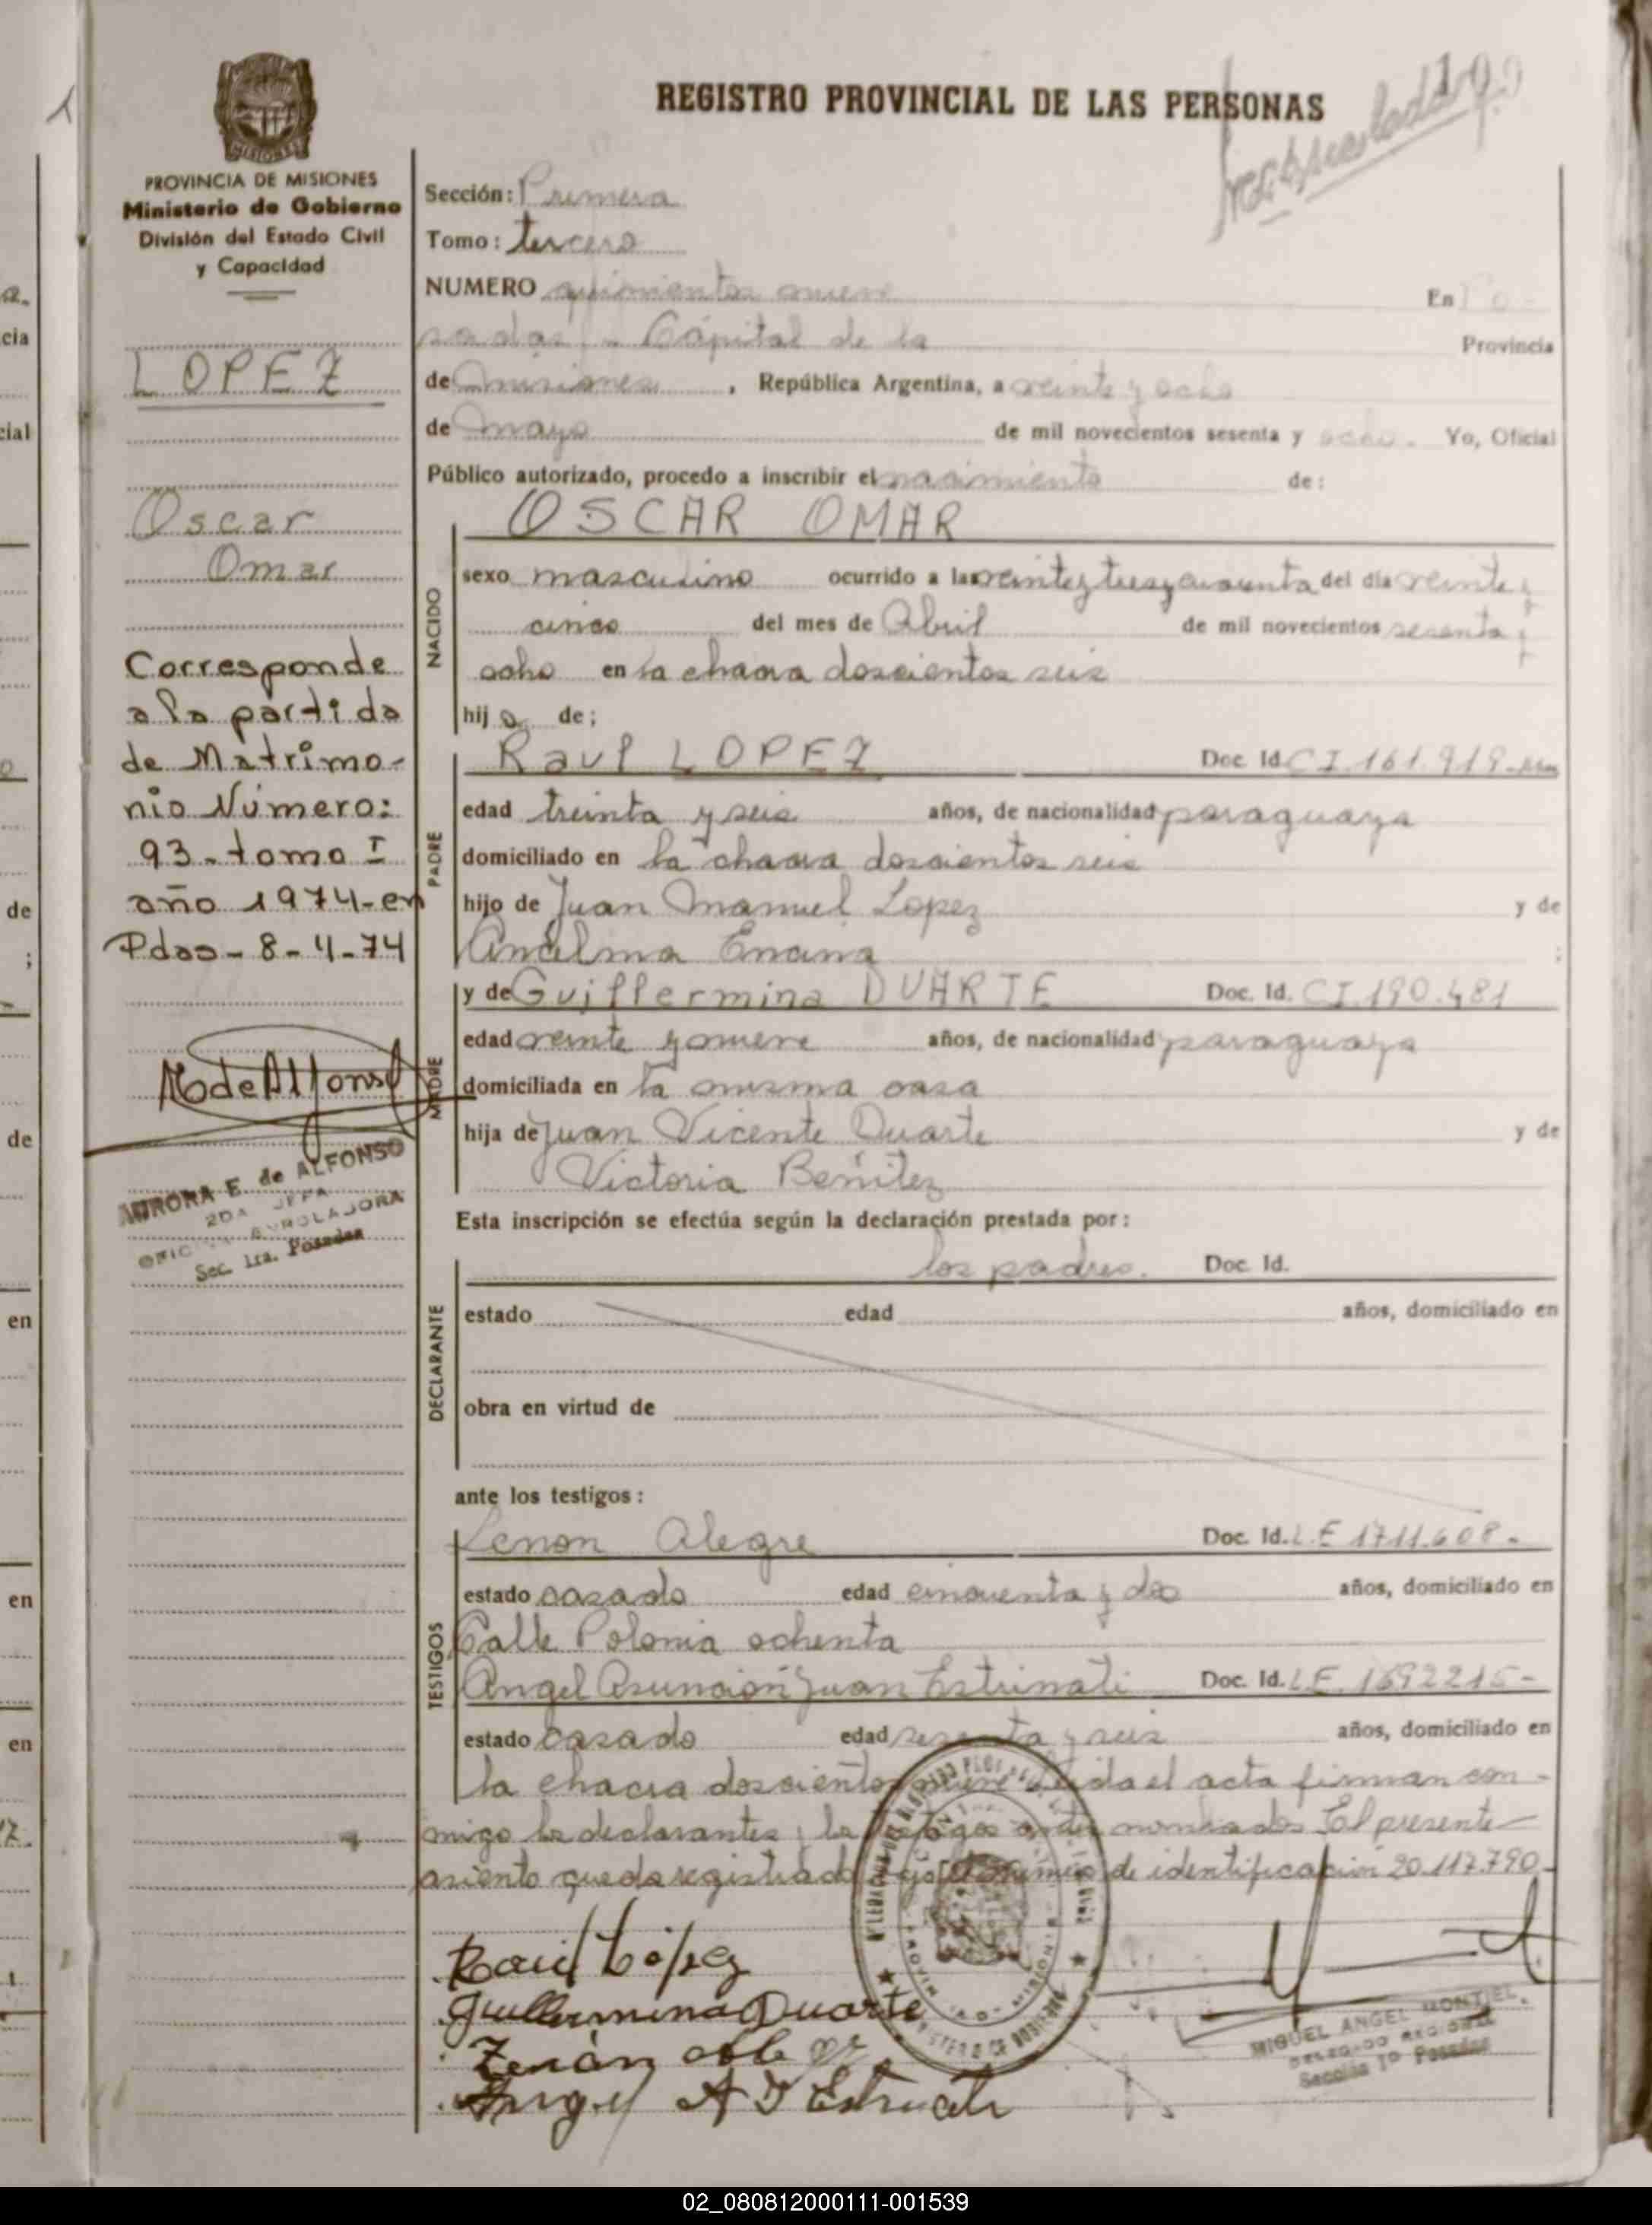 REGISTRO PROVINCIAL DE LAS PERSONAS
MISIONES
PROVINCIA DE MISIONES
Ministerio de Gobierno
División del Estado Civil
y Capacidad
LOPEZ
Oscar
Omar
Corresponde
a la partida
de Matrimo-
nio Número:
93-tomo I
año 1974-en
Pdas-8-4-74
AURORA E. de ALFONSO
2DA JEFA
Sec. 1ra. Posadas
Sección: Primera
Tomo: tercero
NUMERO quinientos nueve En Po-
sadas - Capital de la Provincia
de Misiones, República Argentina, a veinte y ocho
de mayo de mil novecientos sesenta y ocho. Yo, Oficial
Público autorizado, procedo a inscribir el nacimiento de:
NACIDO
OSCAR OMAR
sexo masculino ocurrido a las veinte y tres y cincuenta del día veinte y
cinco del mes de Abril de mil novecientos sesenta y
ocho en la chacra doscientos seis
hijo de;
PADRE
Raul LOPEZ Doc. Id. CI.161.919-
edad treinta y seis años, de nacionalidad paraguaya
domiciliado en la chacra doscientos seis
hijo de Juan Manuel Lopez y de
Ancelma Encina ;
MADRE
y de Guillermina DUARTE Doc. Id. CI.190.481
edad veinte y nueve años, de nacionalidad paraguaya
domiciliada en la misma casa
hija de Juan Vicente Duarte y de
Victoria Benítez
Esta inscripción se efectúa según la declaración prestada por:
DECLARANTE
los padres. Doc. Id.
estado edad años, domiciliado en
obra en virtud de
ante los testigos:
TESTIGOS
Zenon Alegre Doc. Id. L.E 1711.608.-
estado casado edad cincuenta y dos años, domiciliado en
Calle Polonia ochenta
Angel Asunción Juan Estrinati Doc. Id. L.E. 1692215-
estado casado edad sesenta y seis años, domiciliado en
la chacra doscientos nueve Leida el acta firman con-
migo los declarantes y los testigos antes nombrados El presente
asiento queda registrado bajo el número de identificación 20.117.790-
Raul López
Guillermina Duarte
Zenón
Angel A J Estrinati
MIGUEL ANGEL MONTIEL
DELEGADO REGIONAL
Sección 1º Posadas
02_080812000111-001539